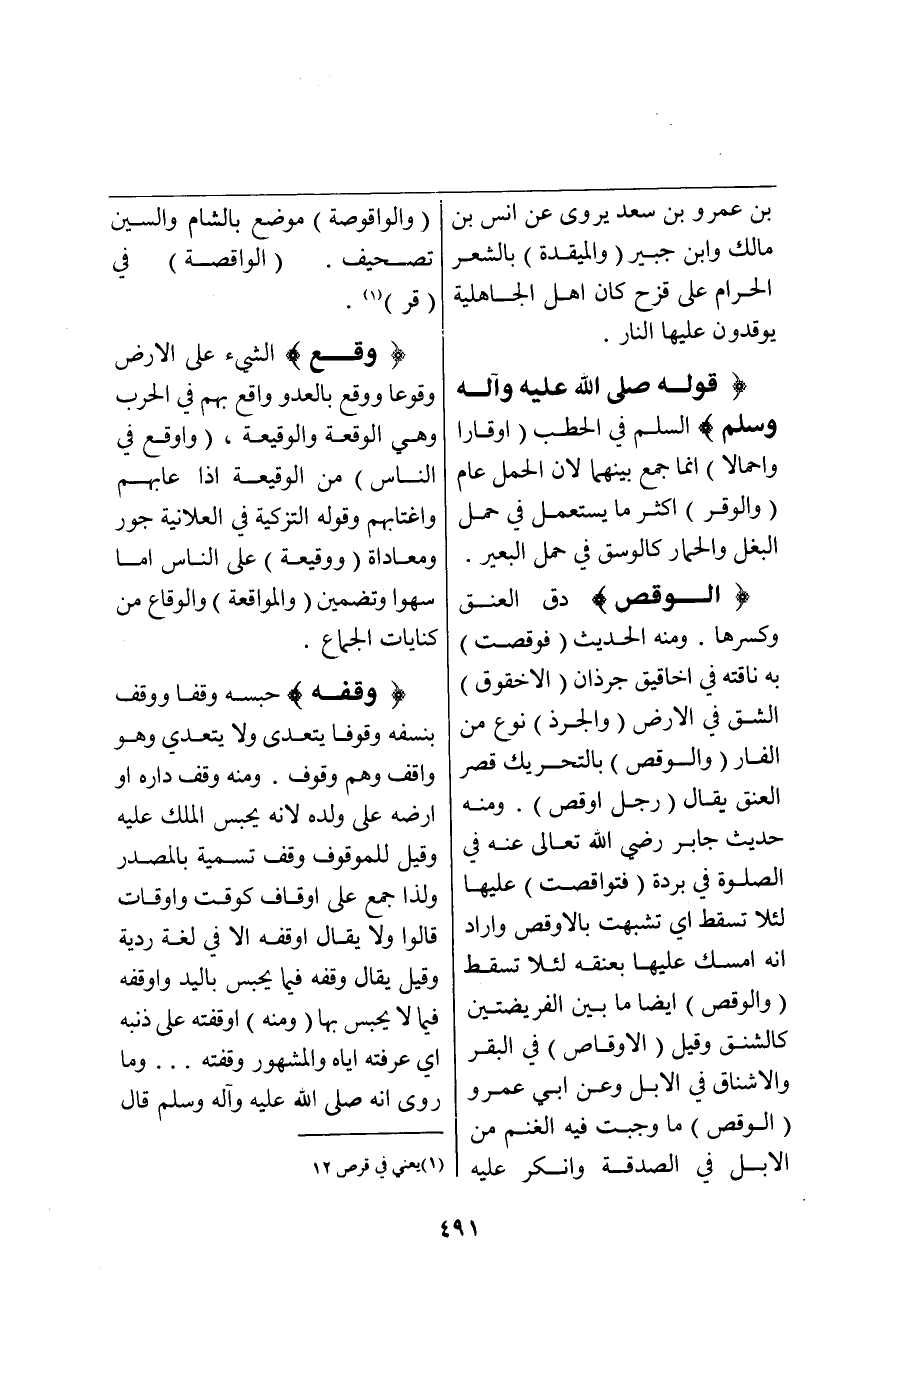 بن عمرو بن سعد يروى عن انس بن
مالك وابن جبير ( والميقدة ) بالشعر
الحرام على قزح كان اهل الجاهلية
يوقدون عليها النار .
﴿ قوله صلى الله عليه وآله
وسلم ﴾ السلم في الحطب ( اوقارا
واحمالا ) انما جمع بينهما لان الحمل عام
( والوقر ) اكثر ما يستعمل في حمل
البغل والحمار كالوسق في حمل البعير .
﴿ الوقص ﴾ دق العنق
وكسرها . ومنه الحديث ( فوقصت )
به ناقته في اخاقيق جرذان ( الاخقوق )
الشق في الارض ( والجرذ ) نوع من
الفار ( والوقص ) بالتحريك قصر
العنق يقال ( رجل اوقص ) . ومنه
حديث جابر رضي الله تعالى عنه في
الصلوة في بردة ( فتواقصت ) عليها
لئلا تسقط اي تشبهت بالاوقص واراد
انه امسك عليها بعنقه لئلا تسقط
( والوقص ) ايضا ما بين الفريضتين
كالشنق وقيل ( الاوقاص ) في البقر
والاشناق في الابل وعن ابي عمرو
( الوقص ) ما وجبت فيه الغنم من
الابل في الصدقة وانكر عليه
( والواقوصة ) موضع بالشام والسين
تصحيف . ( الواقصة ) في
( قر )(١) .
﴿ وقع ﴾ الشيء على الارض
وقوعا ووقع بالعدو واقع بهم في الحرب
وهي الوقعة والوقيعة ، ( واوقع في
الناس ) من الوقيعة اذا عابهم
واغتابهم وقوله التزكية في العلانية جور
ومعاداة ( ووقيعة ) على الناس اما
سهوا وتضمين ( والمواقعة ) والوقاع من
كنايات الجماع .
﴿ وقفه ﴾ حبسه وقفا ووقف
بنسفه وقوفا يتعدى ولا يتعدي وهو
واقف وهم وقوف . ومنه وقف داره او
ارضه على ولده لانه يحبس الملك عليه
وقيل للموقوف وقف تسمية بالمصدر
ولذا جمع على اوقاف كوقت واوقات
قالوا ولا يقال اوقفه الا في لغة ردية
وقيل يقال وقفه فيما يحبس باليد واوقفه
فيما لا يحبس بها ( ومنه ) اوقفته على ذنبه
اي عرفته اياه والمشهور وقفته . . . وما
روى انه صلى الله عليه وآله وسلم قال
(١) يعني في قرص ١٢
٤٩١